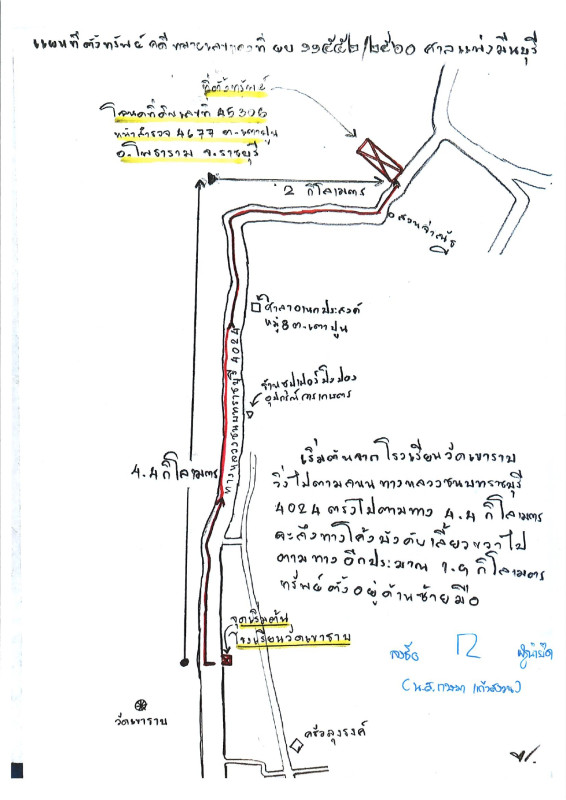 แผนที่ตั้งทรัพย์ คดีหมายเลขแดงที่ ผบ ๑๑๕๕๒/๒๕๖๐ ศาลแพ่งมีนบุรี
ที่ตั้งทรัพย์
โฉนดที่ดินเลขที่ 45306
หน้าสำรวจ 4677 ต.เตาปูน
อ.โพธาราม จ.ราชบุรี
2 กิโลเมตร
ศาลาอเนกประสงค์
หมู่ 8 ต.เตาปูน
ทางหลวงชนบทราชบุรี 4024
อุปกรณ์การเกษตร
4.4 กิโลเมตร
เริ่มต้นจากโรงเรียนวัดเขาราบ
วิ่งไปตามถนนทางหลวงชนบทราชบุรี
4024 ตรงไปตามทาง 4.4 กิโลเมตร
จะถึงทางโค้งบังคับเลี้ยวขวาไป
ตามทางอีกประมาณ 1.9 กิโลเมตร
ทรัพย์ตั้งอยู่ด้านซ้ายมือ
จุดเริ่มต้น
โรงเรียนวัดเขาราบ
ลงชื่อ ผู้นำยึด
วัดเขาราบ
ครัวลุงรงค์